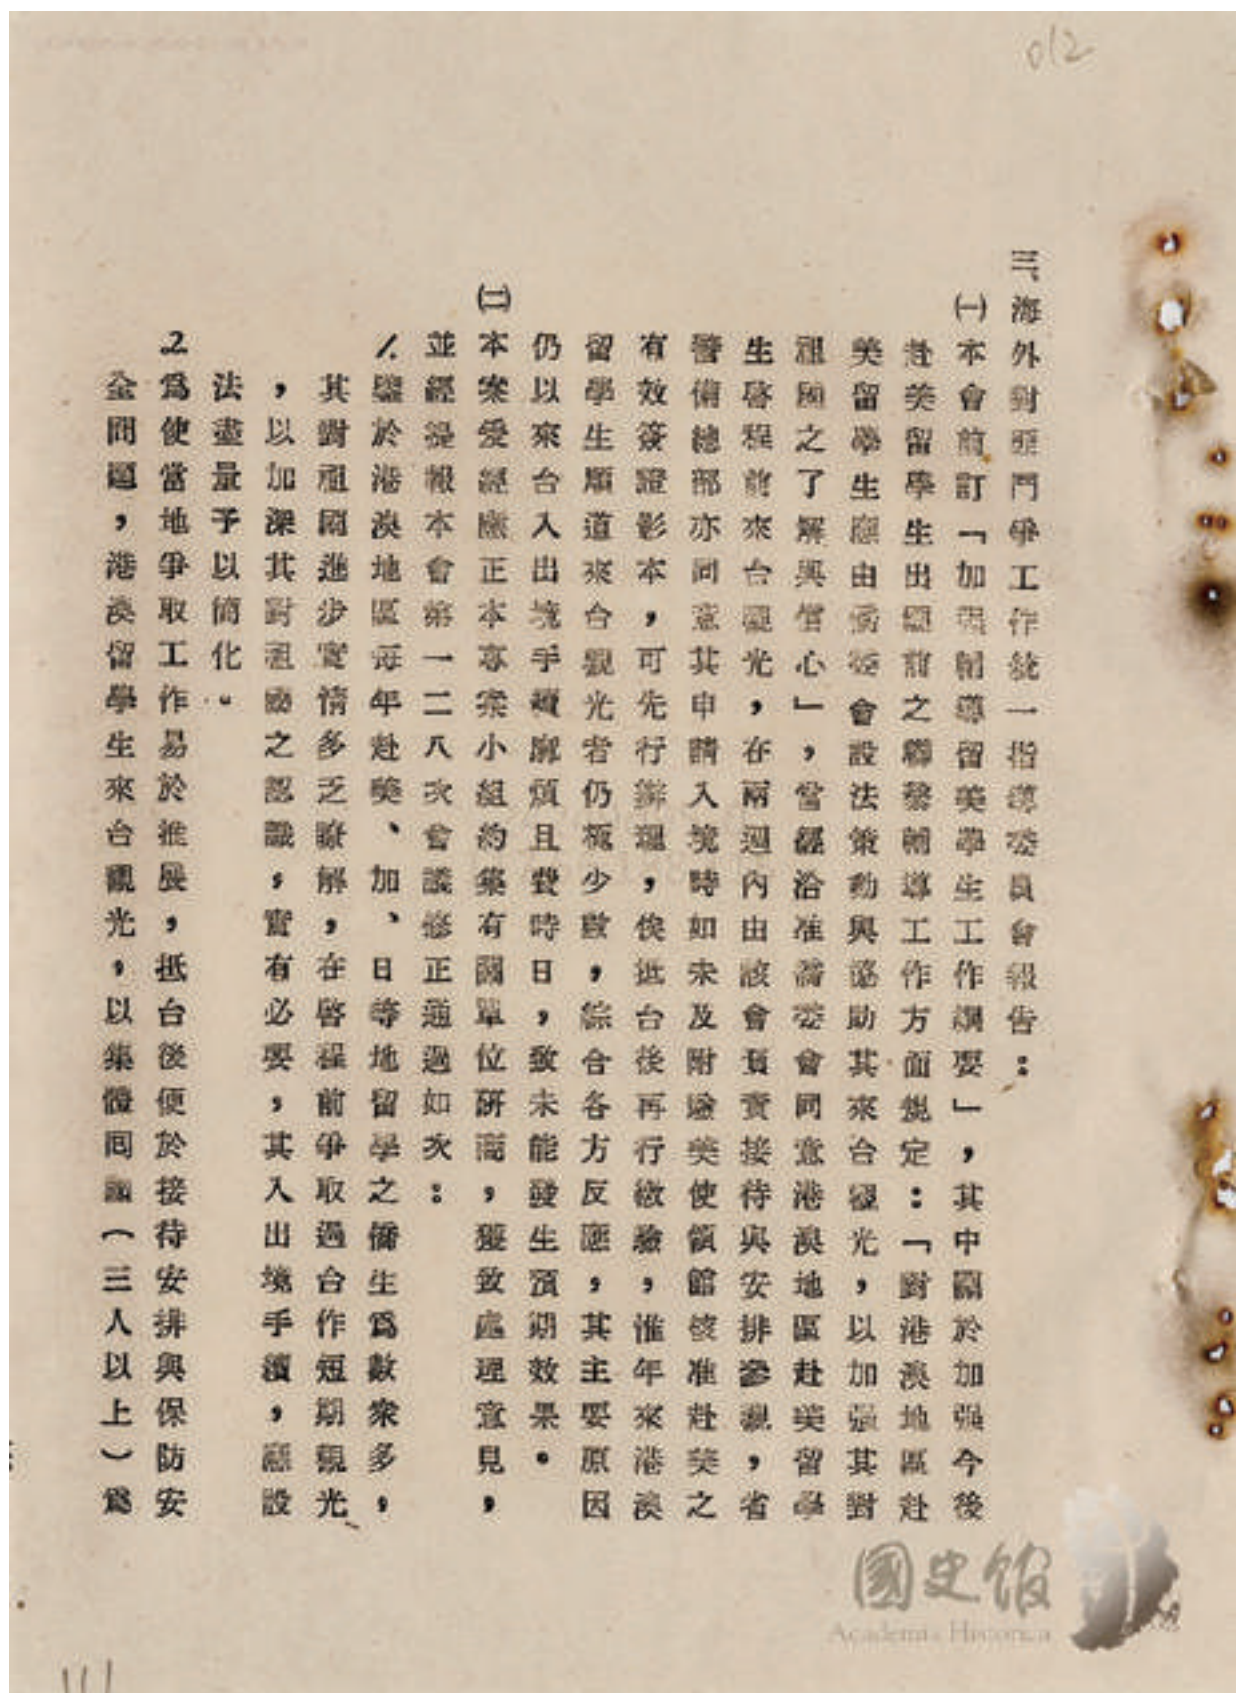 012
三、海外對匪鬥爭工作統一指導委員會報告：
㈠本會前訂「加強輔導留美學生工作綱要」，其中關於加强今後
赴美留學生出國前之聯繫輔導工作方面規定：「對港澳地區赴
美留學生應由僑委會設法策動與協助其來台觀光，以加强其對
祖國之了解與信心」，當經洽准僑委會同意港澳地區赴美留學
生啓程前來台觀光，在兩週內由該會負責接待與安排參觀，省
警備總部亦同意其申請入境時如未及附繳美使領館簽准赴美之
有效簽證影本，可先行辦理，俟抵台後再行繳驗，惟年來港澳
留學生順道來台觀光者仍極少數，綜合各方反應，其主要原因
仍以來台入出境手續麻煩且費時日，致未能發生預期效果。
㈡本案爰經應正本專案小組約集有關單位研商，獲致處理意見，
並經提報本會第一二八次會議修正通過如次：
1.鑒於港澳地區每年赴美、加、日等地留學之僑生為數衆多，
其對祖國進步實情多乏瞭解，在啓程前爭取過台作短期觀光
，以加深其對祖國之認識，實有必要，其入出境手續，應設
法盡量予以簡化。
2.爲使當地爭取工作易於推展，抵台後便於接待安排與保防安
全問題，港澳留學生來台觀光，以集體回國（三人以上）爲
國史館
Academia Historica